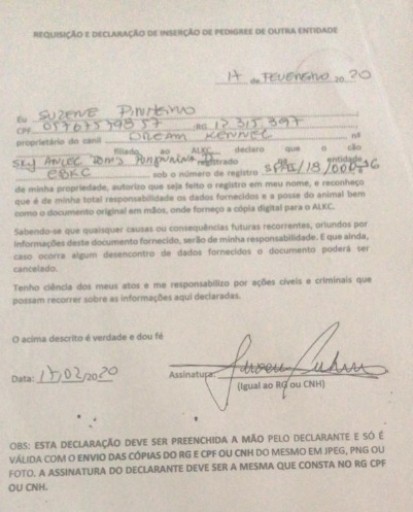 REQUISIÇÃO E DECLARAÇÃO DE INSERÇÃO DE PEDIGREE DE OUTRA ENTIDADE
17 de FEVEREIRO 20 20
Eu SUZENE PINHEIRO
CPF 12315397
proprietário do canil DREAM KENNEL né
filiado ao ALKC declaro que o cão
SKY registrado entidade
EBKC sob o número de registro
de minha propriedade, autorizo que seja feito o registro em meu nome, e reconheço
que é de minha total responsabilidade os dados fornecidos e a posse do animal bem
como o documento original em mãos, onde forneço a cópia digital para o ALKC.
Sabendo-se que quaisquer causas ou consequências futuras recorrentes, oriundos por
informações deste documento fornecido, serão de minha responsabilidade. E que ainda,
caso ocorra algum desencontro de dados fornecidos o documento poderá ser
cancelado.
Tenho ciência dos meus atos e me responsabilizo por ações cíveis e criminais que
possam recorrer sobre as informações aqui declaradas.
O acima descrito é verdade e dou fé
Data: 17/02/2020 Assinatura:
(Igual ao RG ou CNH)
OBS: ESTA DECLARAÇÃO DEVE SER PREENCHIDA A MÃO PELO DECLARANTE E SÓ É
VÁLIDA COM O ENVIO DAS CÓPIAS DO RG E CPF OU CNH DO MESMO EM JPEG, PNG OU
FOTO. A ASSINATURA DO DECLARANTE DEVE SER A MESMA QUE CONSTA NO RG CPF
OU CNH.